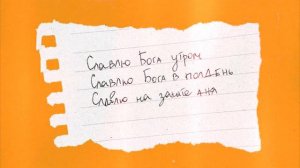 Славлю Бога утром
Славлю Бога в полдень
Славлю на закате дня